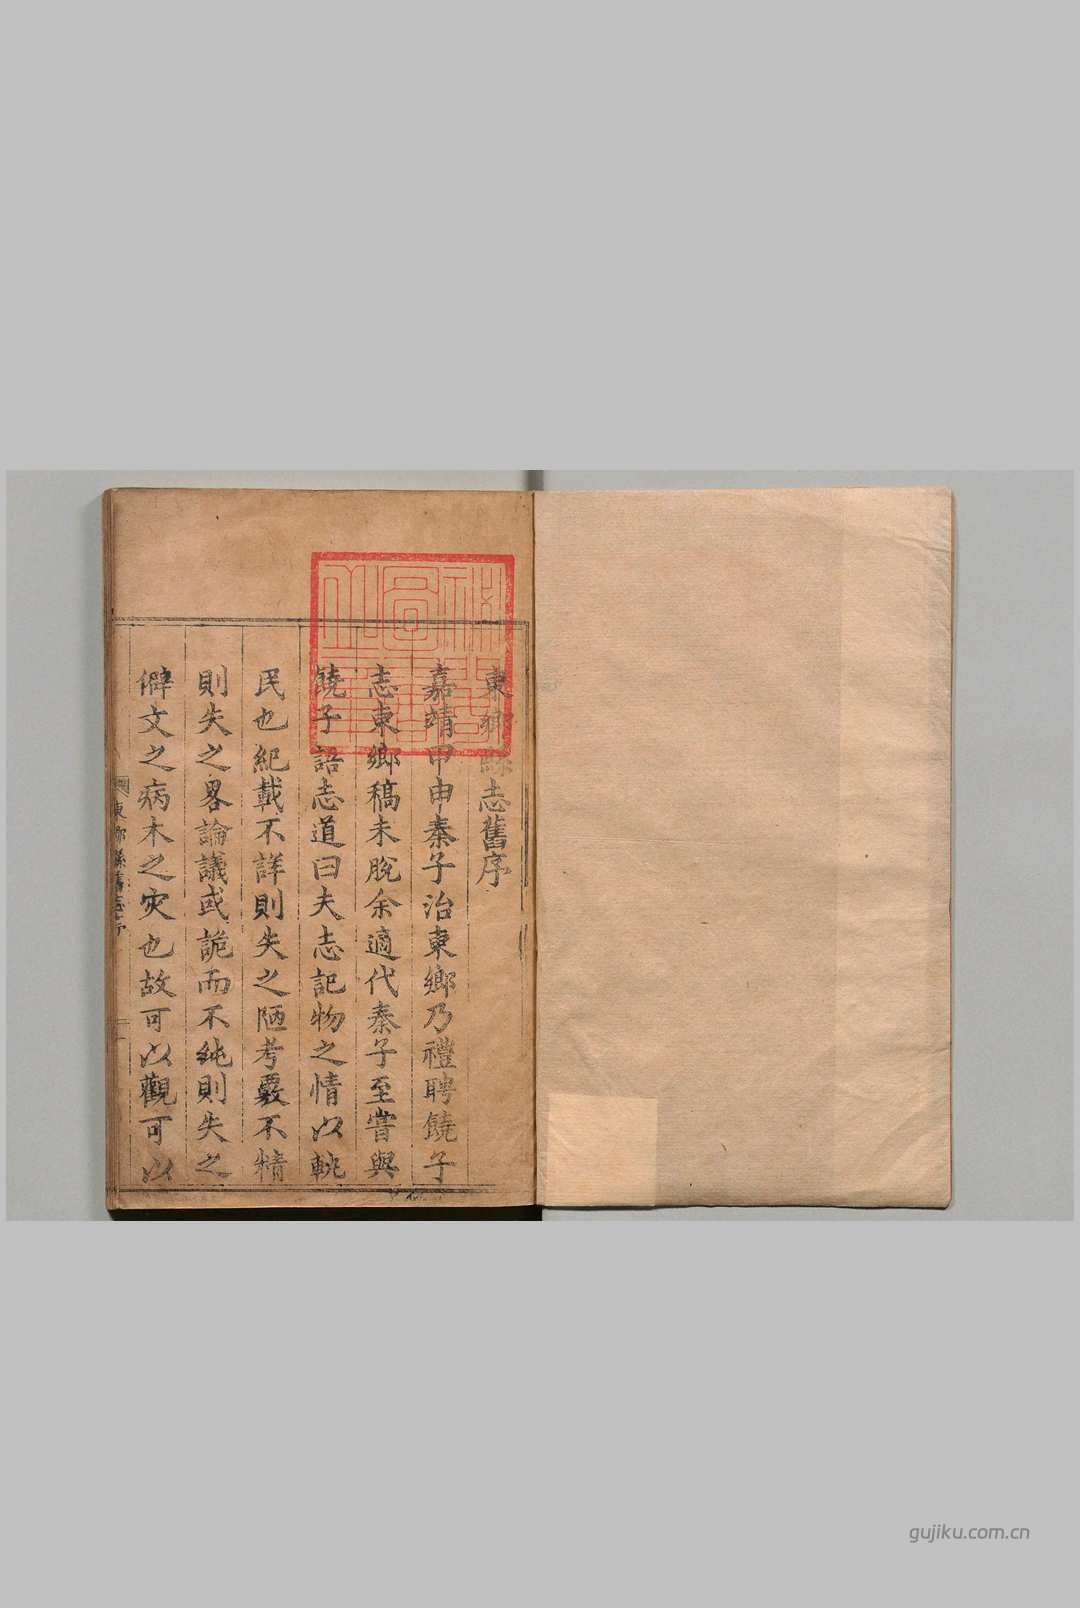 東鄉縣志舊序
嘉靖甲申秦子治東鄉乃禮聘饒子
志東鄉稿未脫余適代秦子至嘗與
饒子語志道曰夫志記物之情以軌
民也紀載不詳則失之陋考覈不精
則失之畧論議或詭而不純則失之
僻文之病木之灾也故可以觀可以
東鄉縣舊志序
gujiku.com.cn